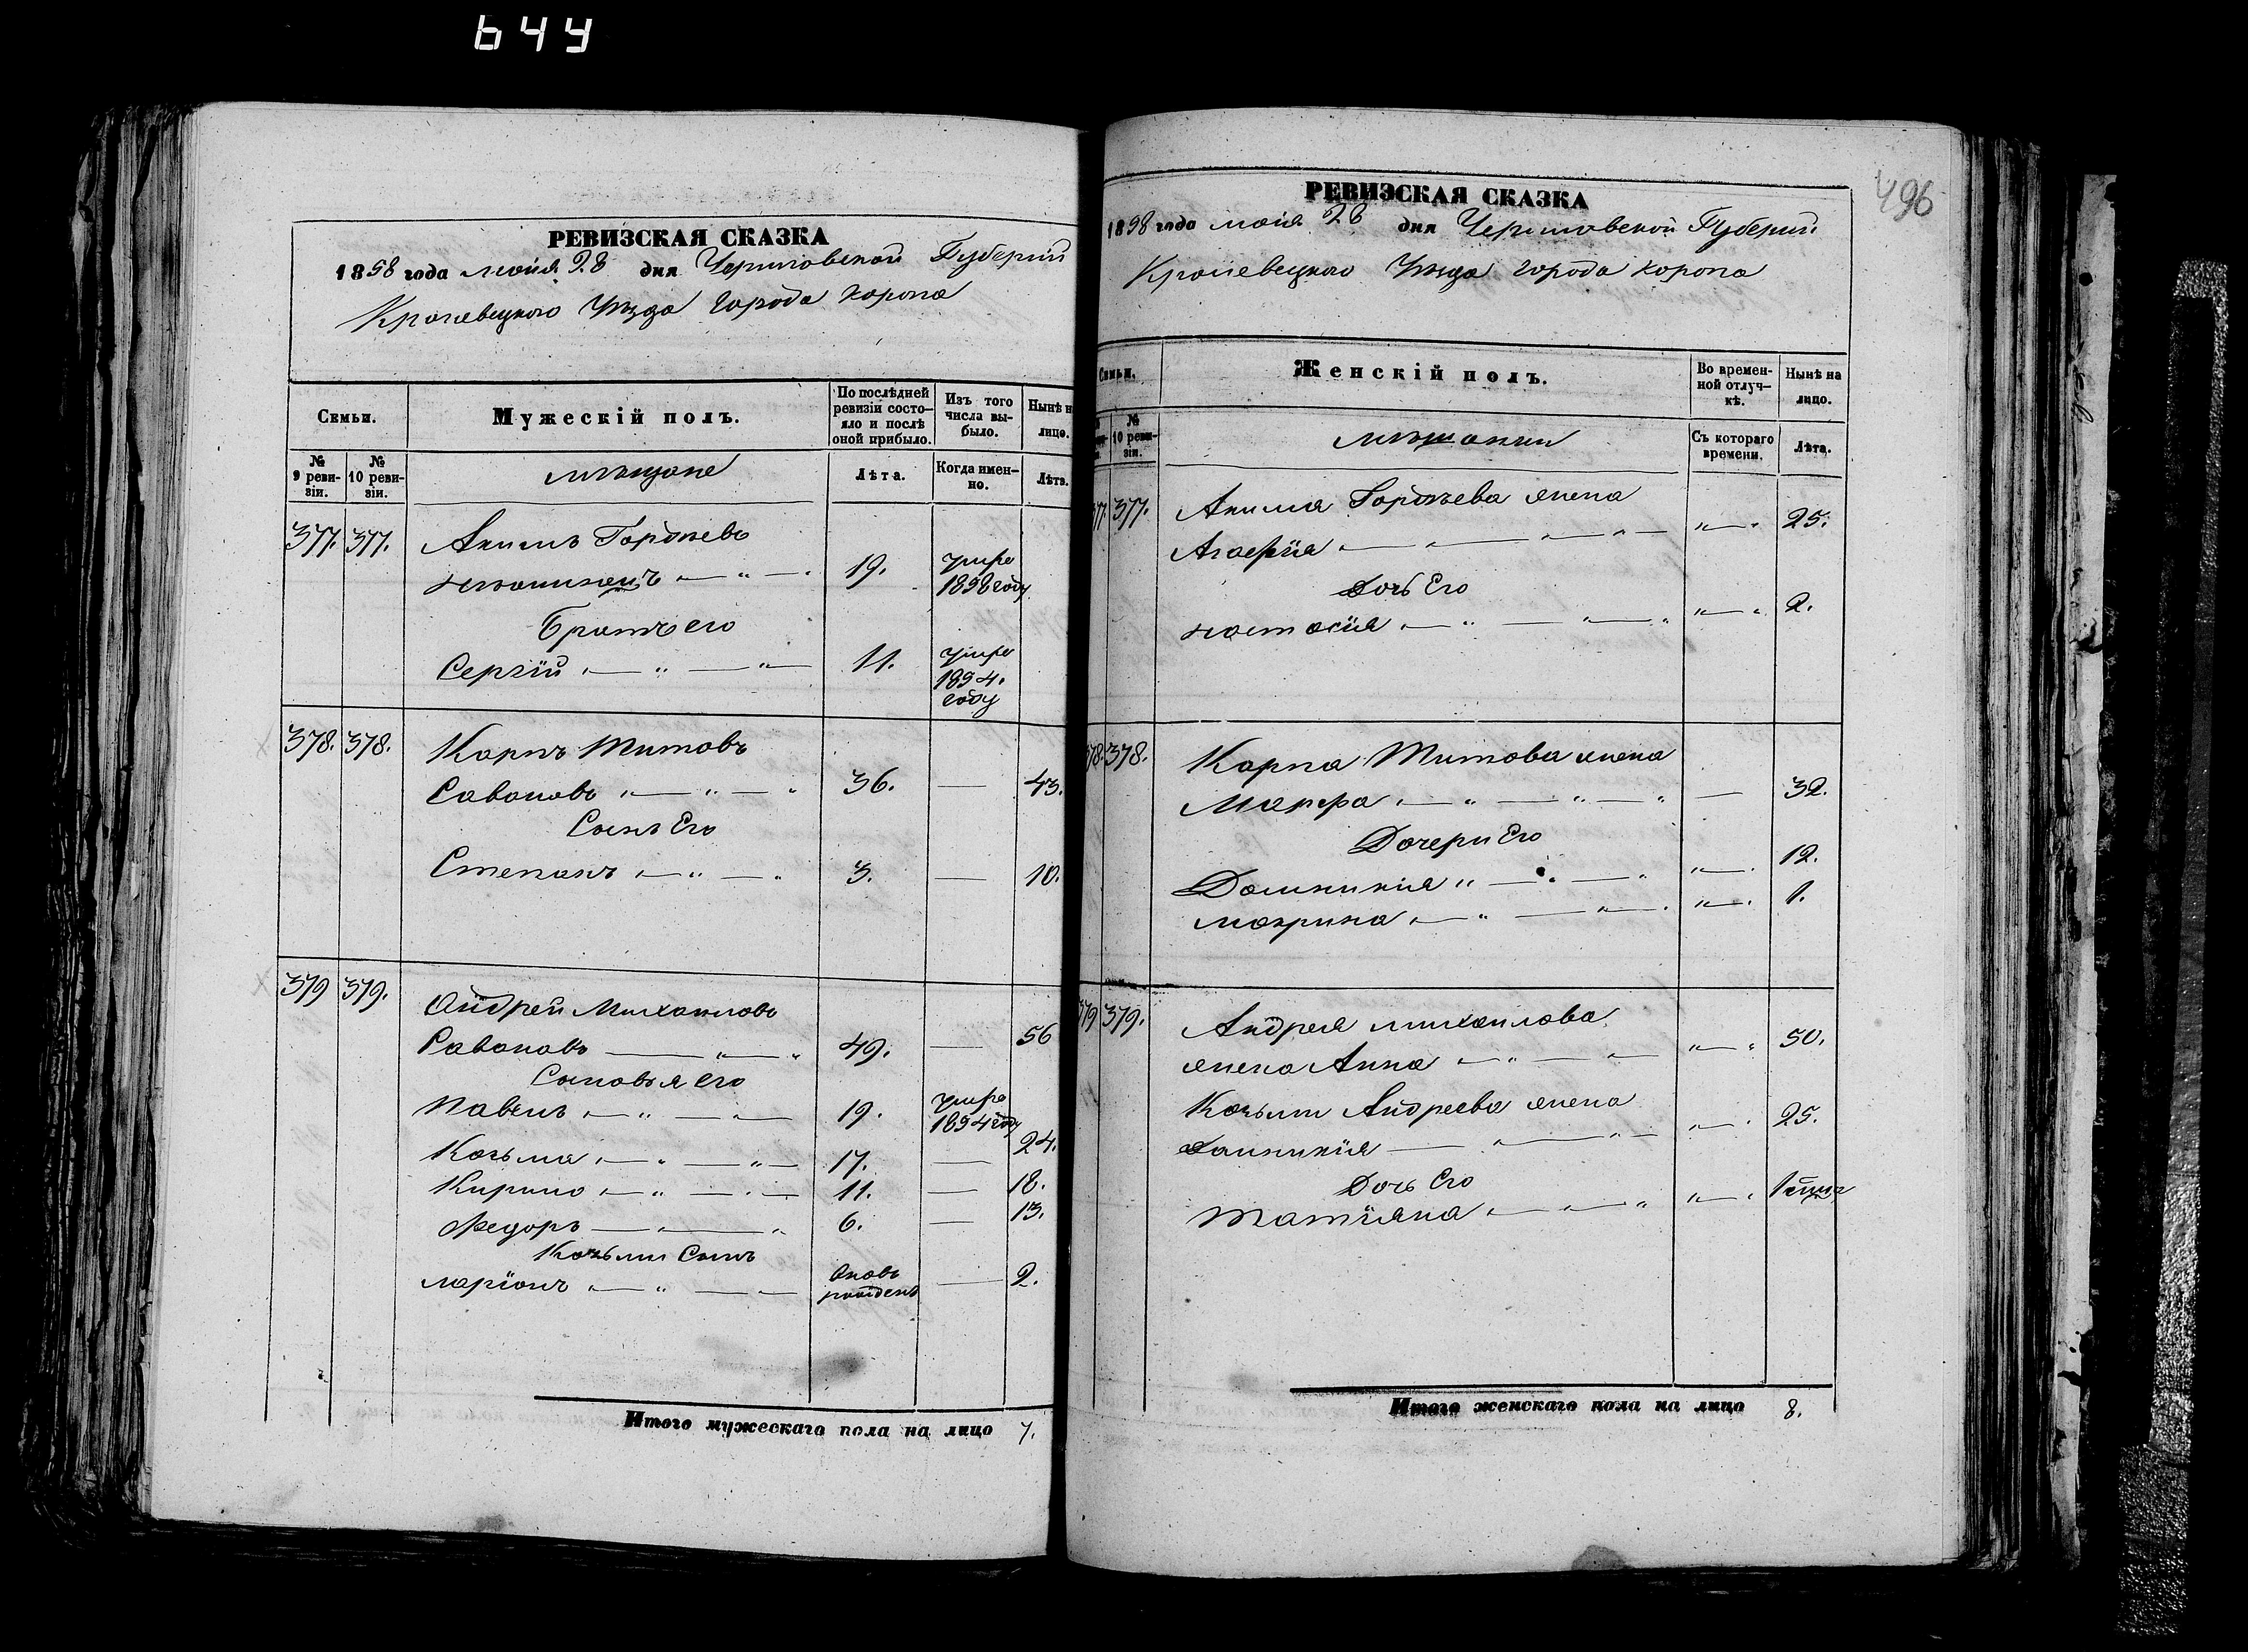 644
РЕВИЗСКАЯ СКАЗКА
1858 года маія 28 дня Черниговской Губерніи
Кролевецкого Уѣзда города Коропа
Семьи.
Мужескій полъ.
По послѣдней ревизіи состояло и послѣ оной прибыло.
Изъ того числа выбыло.
Нынѣ на лицо.
№ 9 ревизіи.
№ 10 ревизіи.
мѣщане
Лѣта.
Когда именно.
Лѣта.
377. 377. Акимъ Гордѣевъ
19. умре 1858 году
Братъ его
Сергій 11. умре 1854. году
378. 378. Карпъ Титовъ
Савоновъ 36. — 43.
Сынъ Его
Степанъ 3. — 10.
379 379. Андрей Михаиловъ
Савоновъ 49. — 56
Сыновья его
Павелъ 19. умре 1854 году
Козьма 17. — 24.
Кирило 11. — 18.
Федоръ 6. — 13.
Козьмы Сынъ
Ларіонъ вновь рожденъ — 2.
Итого мужескаго пола на лицо 7.
496
РЕВИЗСКАЯ СКАЗКА
1858 года маія 28 дня Черниговской Губерніи
Кролевецкого Уѣзда города Коропа
Семьи.
Женскій полъ.
Во временной отлучкѣ.
Нынѣ на лицо.
№ 10 ревизіи.
мѣщанки
Съ котораго времени.
Лѣта.
377. 377. Акима Гордѣева жена
Агафія 25.
Дочь Его
Настасія 2.
378. 378. Карпа Титова жена
Марфа — 32.
Дочери Его
Домникія 12.
Макрина 1.
379 379. Андрея Михаилова
жена Анна 50.
Козьмы Андреева жена
Домникія 25.
Дочь Его
Татіяна 1
Итого женскаго пола на лицо 8.